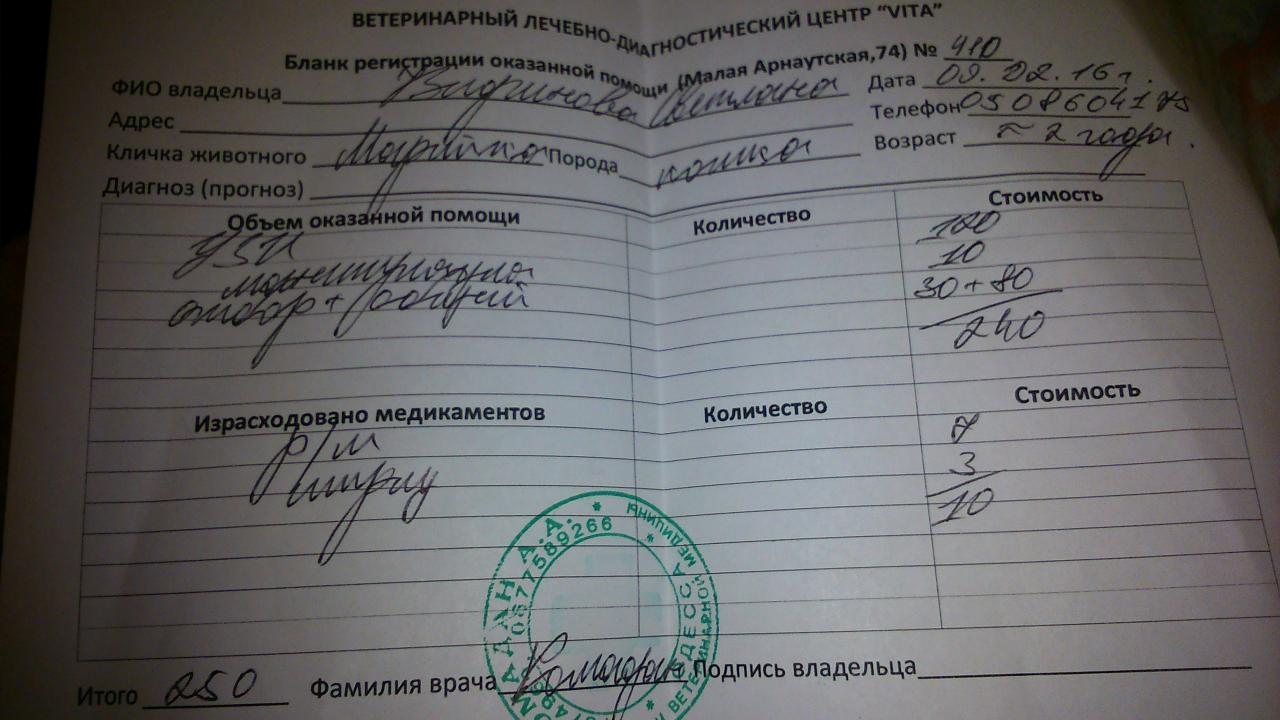 ВЕТЕРИНАРНЫЙ ЛЕЧЕБНО-ДИАГНОСТИЧЕСКИЙ ЦЕНТР "VITA"
Бланк регистрации оказанной помощи (Малая Арнаутская,74) № 410
ФИО владельца Светлана Дата 09.02.16г.
Адрес Телефон 0508604175
Кличка животного Порода кошка Возраст ≈ 2 года.
Диагноз (прогноз)
Объем оказанной помощи Количество Стоимость
УЗИ 120
манипуляция 10
отбор + общий 30+80
240
Израсходовано медикаментов Количество Стоимость
р/м 7
шприц 3
10
Итого 250 Фамилия врача Комадан Подпись владельца
КОМАДАН А.А. *
ВЕТЕРИНАРНОЙ МЕДИЦИНЫ *
ОДЕССА *